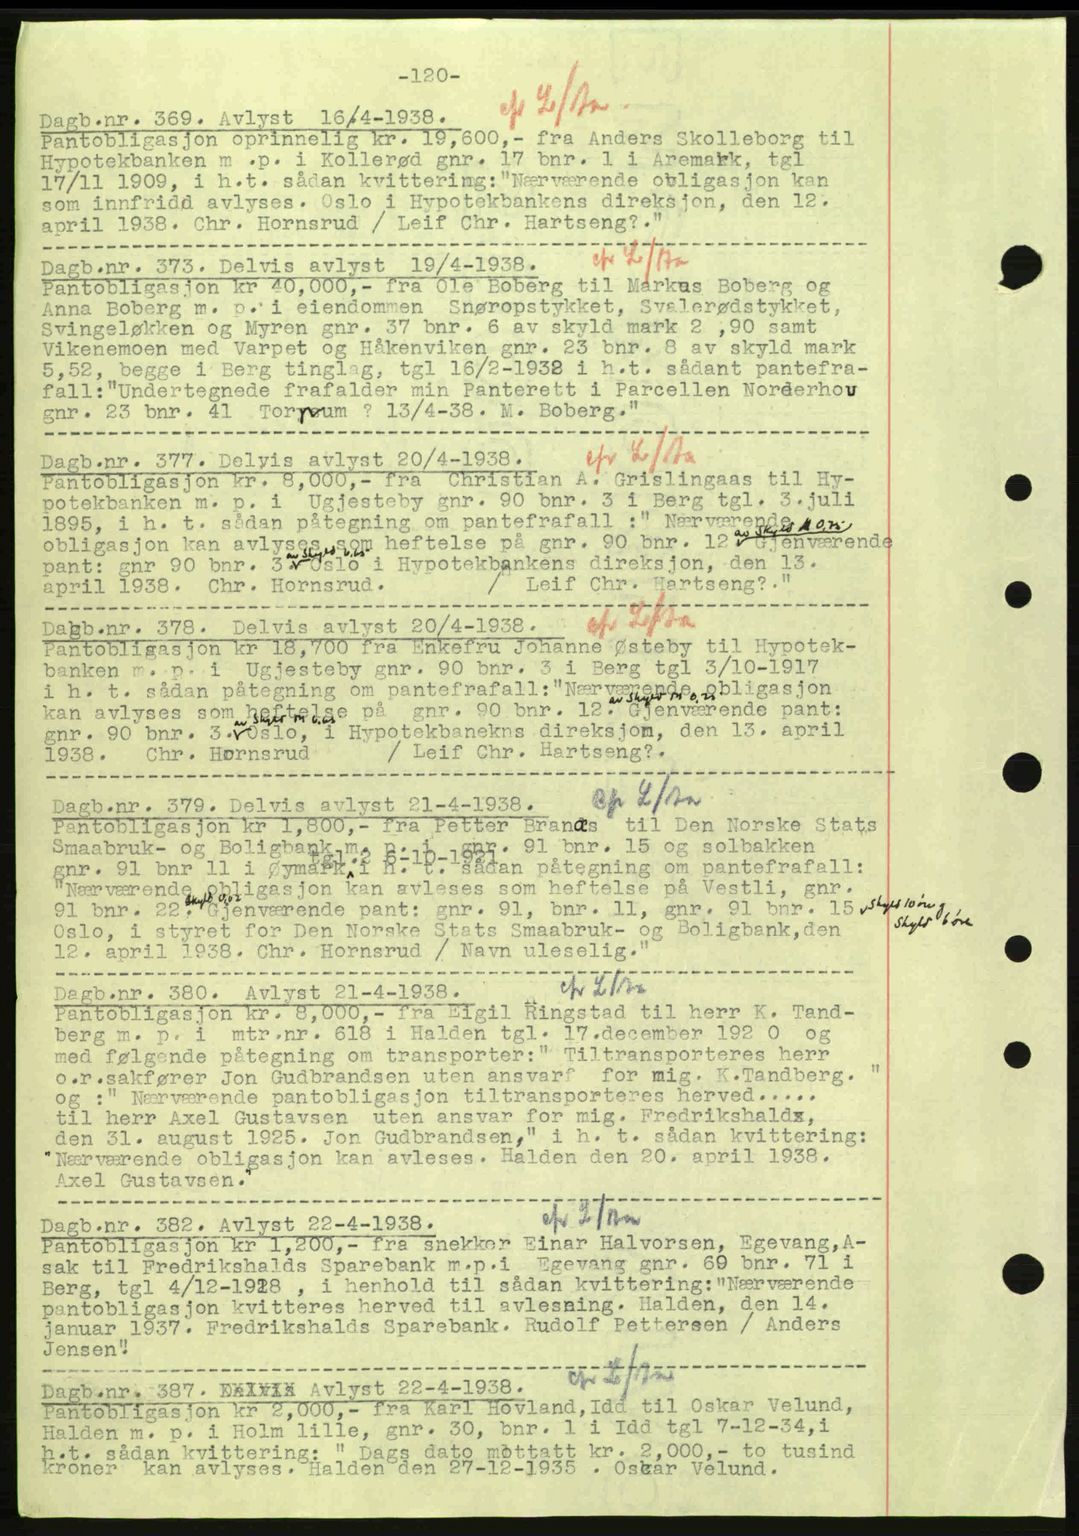 -120-
Dagb.nr. 369. Avlyst 16/4-1938.
Pantobligasjon oprinnelig kr. 19,600,- fra Anders Skolleborg til
Hypotekbanken m .p. i Kollerød gnr. 17 bnr. 1 i Aremark, tgl
17/11 1909, i h.t. sådan kvittering:"Nærværende obligasjon kan
som innfridd avlyses. Oslo i Hypotekbankens direksjon, den 12.
april 1938. Chr. Hornsrud / Leif Chr. Hartseng?."
Dagb.nr. 373. Delvis avlyst 19/4-1938.
Pantobligasjon kr 40,000,- fra Ole Boberg til Markus Boberg og
Anna Boberg m. p. i eiendommen Snøropstykket, Svalerødstykket,
Svingeløkken og Myren gnr. 37 bnr. 6 av skyld mark 2 ,90 samt
Vikenemoen med Varpet og Håkenviken gnr. 23 bnr. 8 av skyld mark
5,52, begge i Berg tinglag, tgl 16/2-1932 i h.t. sådant pantefra-
fall:"Undertegnede frafalder min Panterett i Parcellen Norderhov
gnr. 23 bnr. 41 Torpum ? 13/4-38. M. Boberg."
Dagb.nr. 377. Delvis avlyst 20/4-1938.
Pantobligasjon kr. 8,000,- fra Christian A. Grislingaas til Hy-
potekbanken m. p. i Ugjesteby gnr. 90 bnr. 3 i Berg tgl. 3.juli
1895, i h. t. sådan påtegning om pantefrafall :" Nærværende
av skyld M 0,25
obligasjon kan avlyses som heftelse på gnr. 90 bnr. 12. Gjenværende
av skyld 0,65
pant: gnr 90 bnr. 3. Oslo i Hypotekbankens direksjon, den 13.
april 1938. Chr. Hornsrud. / Leif Chr. Hartseng?."
Dagb.nr. 378. Delvis avlyst 20/4-1938.
Pantobligasjon kr 18,700 fra Enkefru Johanne Østeby til Hypotek-
banken m. p. i Ugjesteby gnr. 90 bnr. 3 i Berg tgl 3/10-1917
i h. t. sådan påtegning om pantefrafall:"Nærværende obligasjon
av skyld m 0,25
kan avlyses som heftelse på gnr. 90 bnr. 12. Gjenværende pant:
av skyld m 0.65
gnr. 90 bnr. 3. Oslo, i Hypotekbanekns direksjon, den 13. april
1938. Chr. Hornsrud / Leif Chr. Hartseng?.
Dagb.nr. 379. Delvis avlyst 21-4-1938.
Pantobligasjon kr 1,800,- fra Petter Branæs til Den Norske Stats
Smaabruk- og Boligbank m. p. i gnr. 91 bnr. 15 og solbakken
tgl. 2 6-10-1921
gnr. 91 bnr 11 i Øymark i h. t. sådan påtegning om pantefrafall:
"Nærværende obligasjon kan avleses som heftelse på Vestli, gnr.
skyld 0,02
91 bnr. 22. Gjenværende pant: gnr. 91, bnr. 11, gnr. 91 bnr. 15 skyld 10 øre g
skyld 6 øre
Oslo, i styret for Den Norske Stats Smaabruk- og Boligbank,den
12. april 1938. Chr. Hornsrud / Navn uleselig."
Dagb.nr. 380. Avlyst 21-4-1938.
Pantobligasjon kr. 8,000,- fra Eigil Ringstad til herr K. Tand-
berg m. p. i mtr.nr. 618 i Halden tgl. 17.december 192 0 og
med følgende påtegning om transporter:" Tiltransporteres herr
o.r.sakfører Jon Gudbrandsen uten ansvarf for mig. K.Tandberg. "
og :" Nærværende pantobligasjon tiltransporteres herved.....
til herr Axel Gustavsen uten ansvar for mig. Fredrikshaldx,
den 31. august 1925. Jon Gudbrandsen," i h. t. sådan kvittering:
"Nærværende obligasjon kan avleses. Halden den 20. april 1938.
Axel Gustavsen."
Dagb.nr. 382. Avlyst 22-4-1938.
Pantobligasjon kr 1,200,- fra snekker Einar Halvorsen, Egevang,A-
sak til Fredrikshalds Sparebank m.p.i Egevang gnr. 69 bnr. 71 i
Berg, tgl 4/12-1928 , i henhold til sådan kvittering:"Nærværende
pantobligasjon kvitteres herved til avlesning. Halden, den 14.
januar 1937. Fredrikshalds Sparebank. Rudolf Pettersen / Anders
Jensen".
Dagb.nr. 387. Avlyst 22-4-1938.
Pantobligasjon kr 2,000,- fra Karl Hovland,Idd til Oskar Velund,
Halden m. p. i Holm lille, gnr. 30, bnr. 1 i Idd tgl 7-12-34,i
h.t. sådan kvittering: " Dags dato mottatt kr. 2,000,- to tusind
kroner kan avlyses. Halden den 27-12-1935 . Oskar Velund.